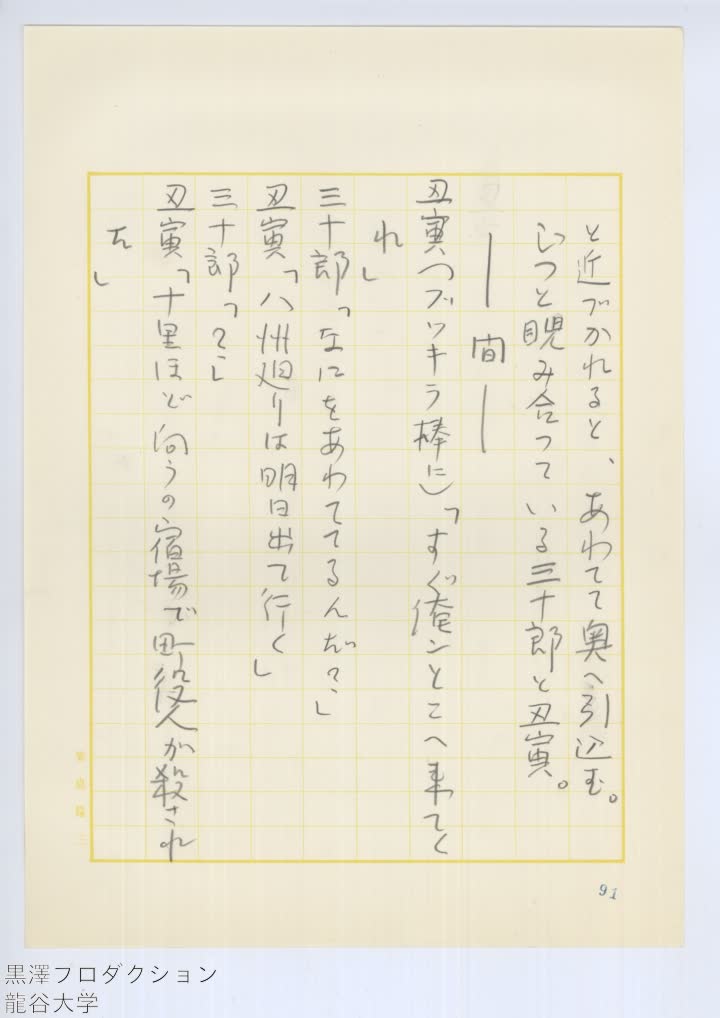 と近づかれると、あわてて奥へ引込む。
じつと睨み合つている三十郎と丑寅。
― 間 ―
丑寅（ブツキラ棒に）「すぐ俺ンとこへ来てく
れ」
三十郎「なにをあわててるんだ？」
丑寅「八州廻りは明日出て行く」
三十郎「？」
丑寅「十里ほど向うの宿場で町役人が殺され
た」
91
黒澤プロダクション
龍谷大学